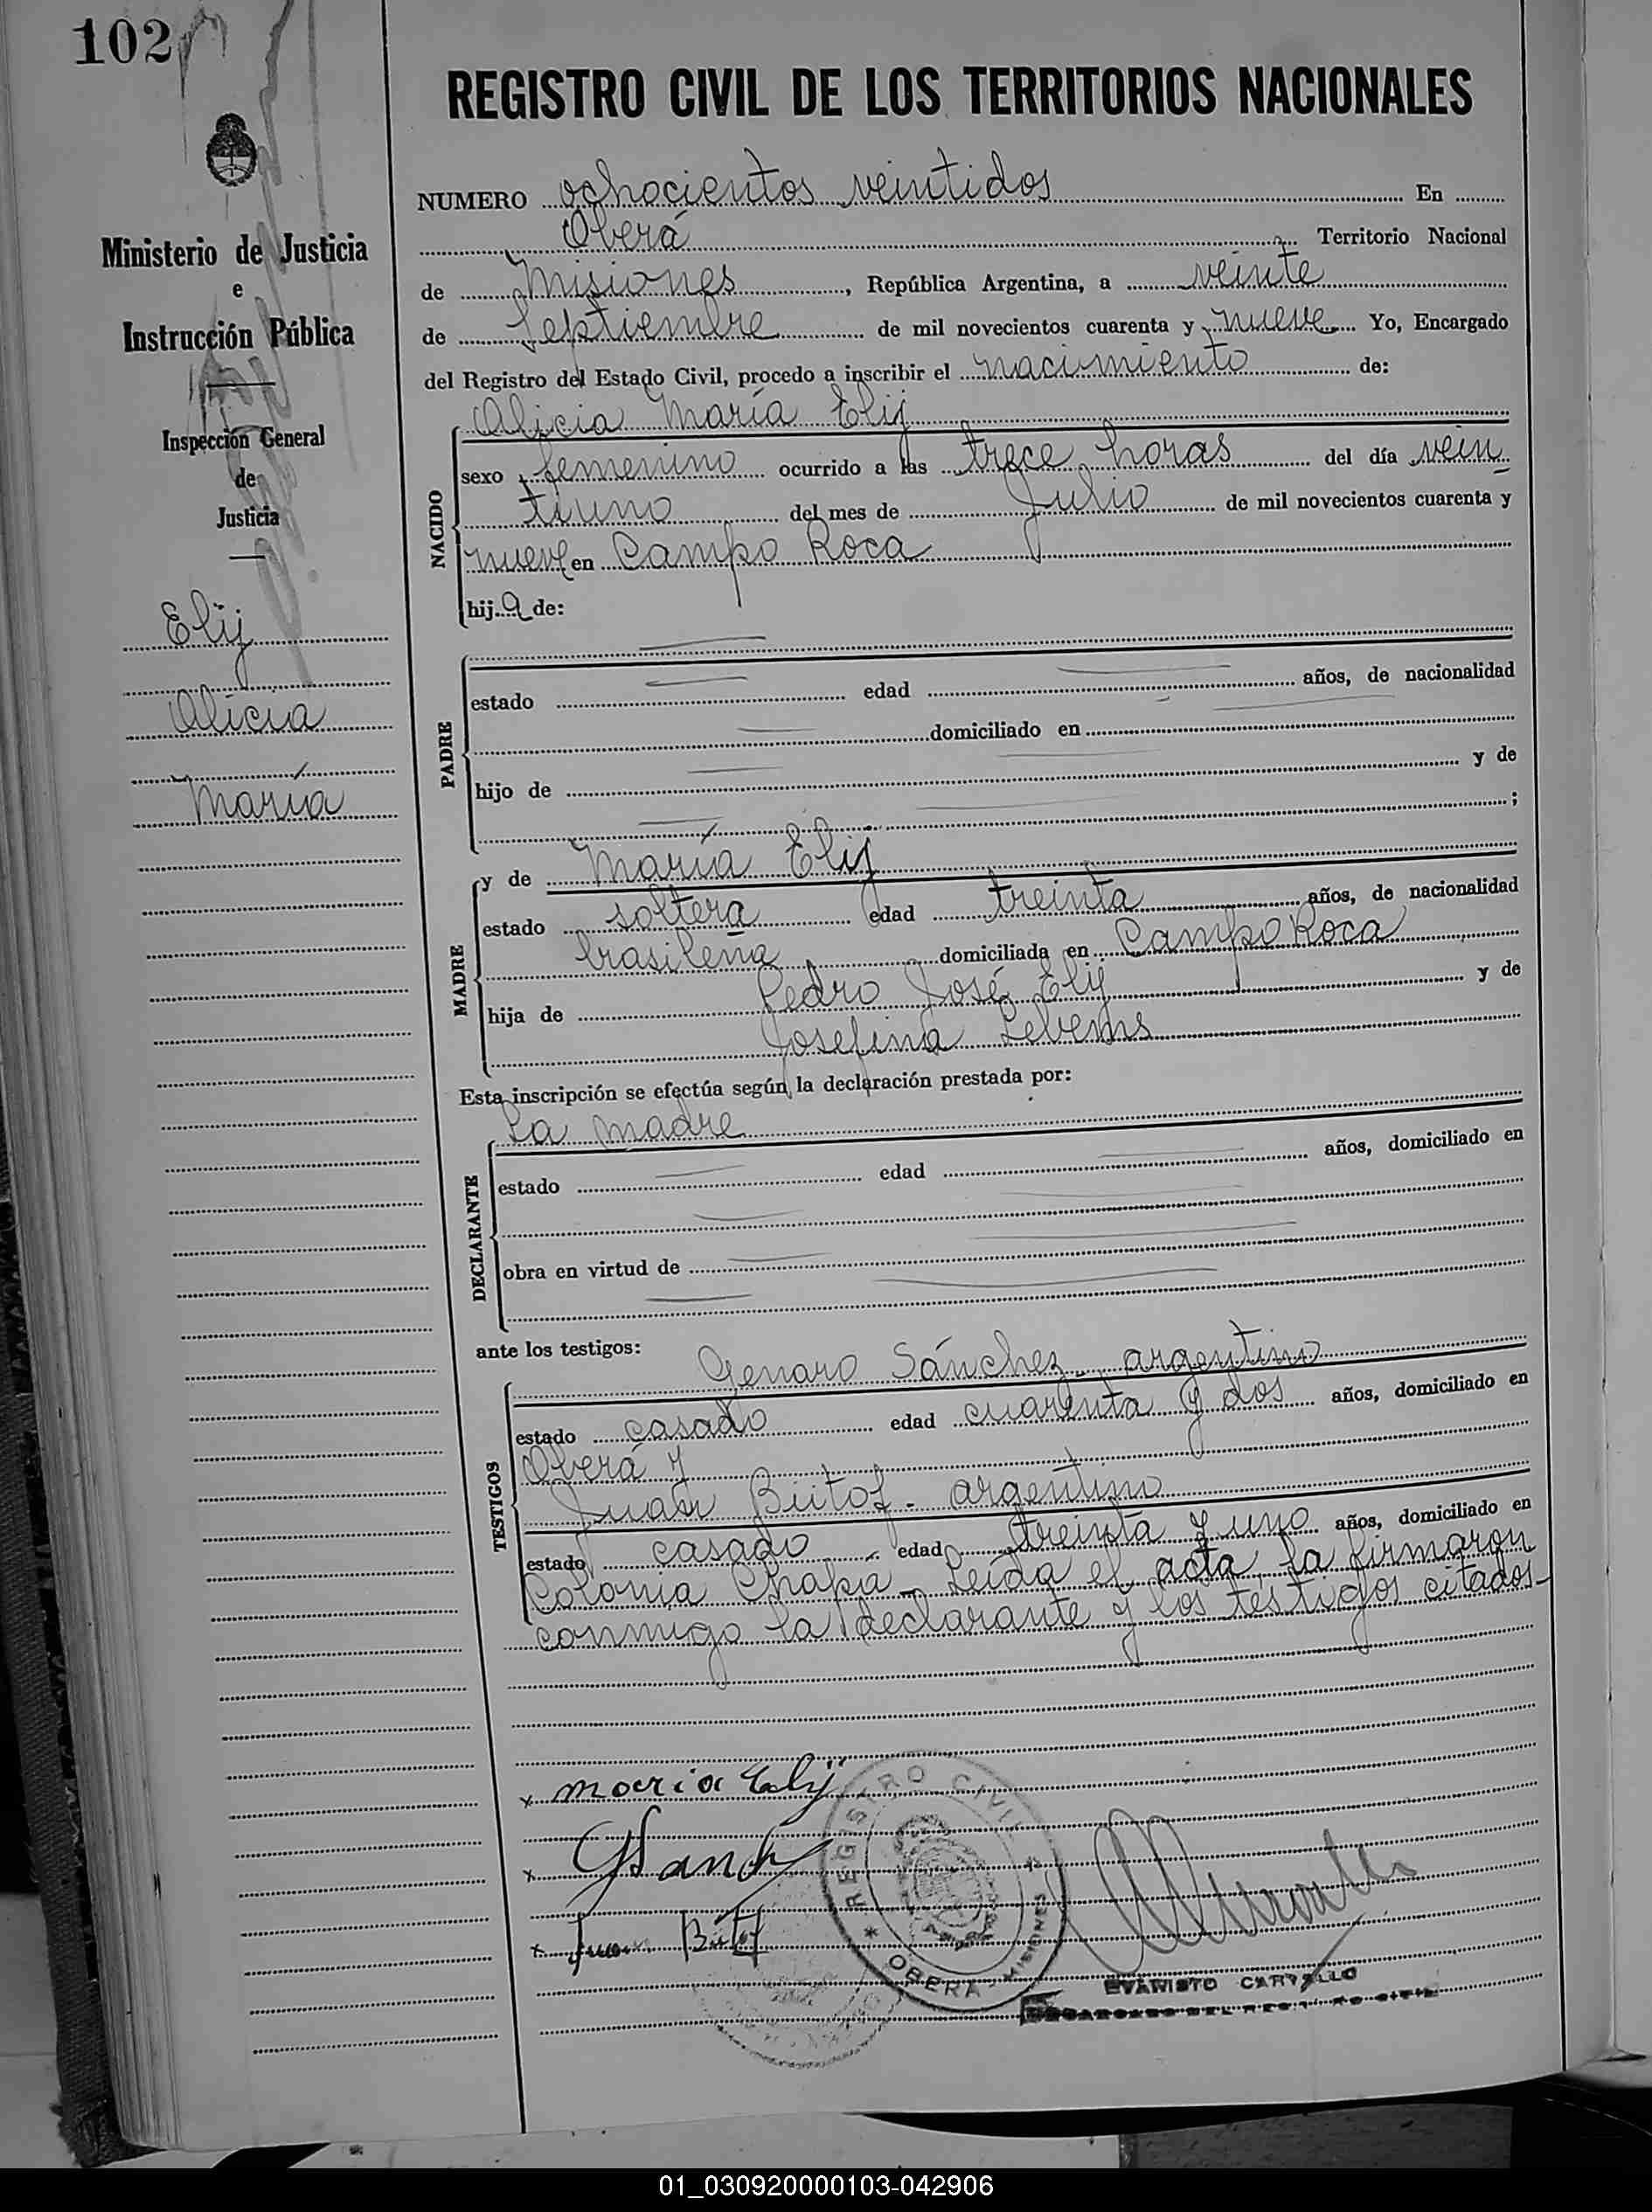 102
REGISTRO CIVIL DE LOS TERRITORIOS NACIONALES
Ministerio de Justicia
e
Instrucción Pública
Inspección General
de
Justicia
Elij
Alicia
María
NUMERO ochocientos veintidos En
Oberá Territorio Nacional
de Misiones, República Argentina, a veinte
de Septiembre de mil novecientos cuarenta y nueve Yo, Encargado
del Registro del Estado Civil, procedo a inscribir el nacimiento de:
NACIDO
Alicia María Elij
sexo femenino ocurrido a las trece horas del día vein
tiuno del mes de Julio de mil novecientos cuarenta y
nueve en Campo Roca
hija de:
PADRE
estado edad años, de nacionalidad
domiciliado en
hijo de y de
;
MADRE
y de María Elij
estado soltera edad treinta años, de nacionalidad
brasileña domiciliada en Campo Roca
hija de Pedro José Elij y de
Josefina
Esta inscripción se efectúa según la declaración prestada por:
DECLARANTE
La madre
estado edad años, domiciliado en
obra en virtud de
ante los testigos:
TESTIGOS
Genaro Sánchez - argentino
estado casado edad cuarenta y dos años, domiciliado en
Oberá y
Juan Bütof - argentino
estado casado edad treinta y uno años, domiciliado en
Colonia Chapá - Leída el acta, la firmaron
conmigo la declarante y los testigos citados -
x maria Elij
x GSanch
x Juan Bütof
REGISTRO CIVIL
* OBERA - MISIONES *
EVARISTO CARVALLO
ENCARGADO DEL REGISTRO CIVIL
01_030920000103-042906